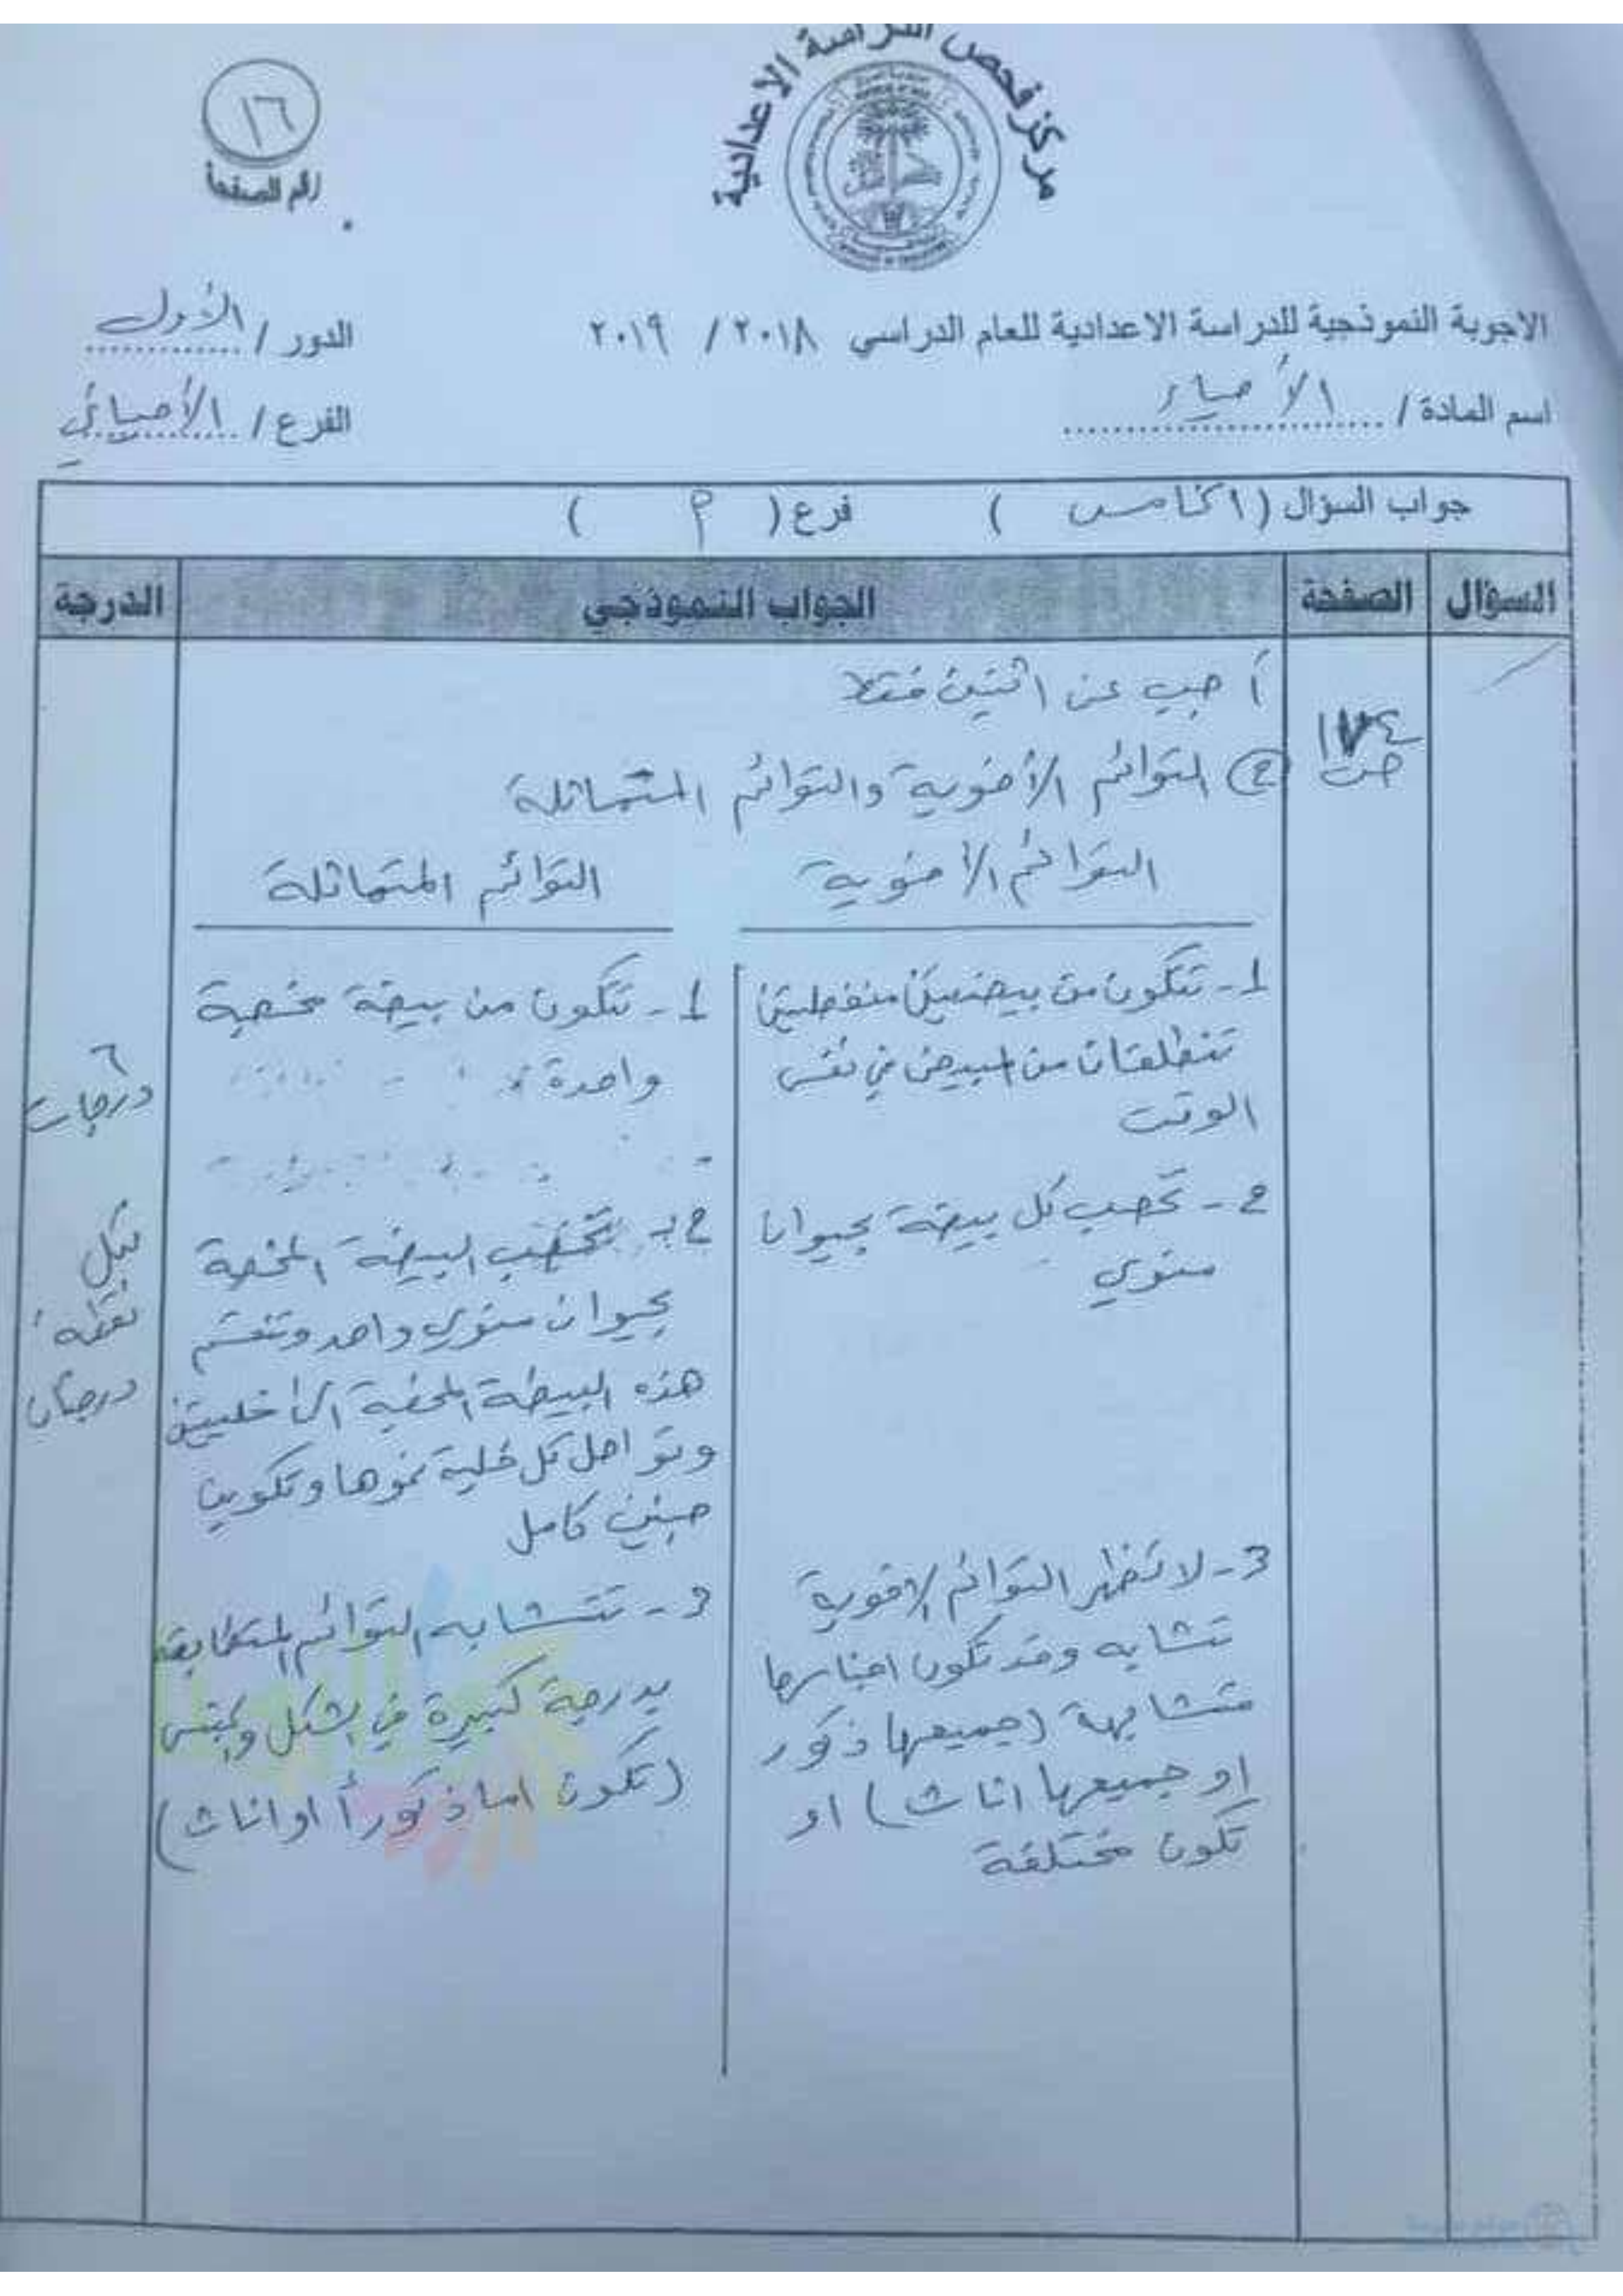 مركز فحص الدراسة الاعدادية
١٦
رقم الصفحة
الاجوبة النموذجية للدراسة الاعدادية للعام الدراسي ٢٠١٨ / ٢٠١٩
الدور / الأول
اسم المادة / الأحياء
الفرع / الأحيائي
جواب السؤال ( الخامس ) فرع ( م )
السؤال الصفحة الجواب النموذجي الدرجة
أجب عن اثنين فقط
ص ١٧٤
② التوائم الأخوية والتوائم المتماثلة
التوائم الأخوية
1- تتكون من بيضتين منفصلتين
تنطلقان من المبيض في نفس
الوقت
2- تخصب كل بيضة بحيوان
منوي
3- لا تظهر التوائم الاخوية
تشابه وقد تكون اجناسها
متشابهة (جميعها ذكور
او جميعها اناث) او
تكون مختلفة
التوائم المتماثلة
1- تتكون من بيضة مخصبة
واحدة
2- تخصب البيضة المخصبة
بحيوان منوي واحد وتنقسم
هذه البيضة المخصبة الى خليتين
وتواصل كل خلية نموها وتكوين
جنين كامل
3- تتشابه التوائم المتطابقة
بدرجة كبيرة في الشكل والجنس
(تكون اما ذكوراً او اناث)
٦
درجات
لكل
نقطة
درجتان